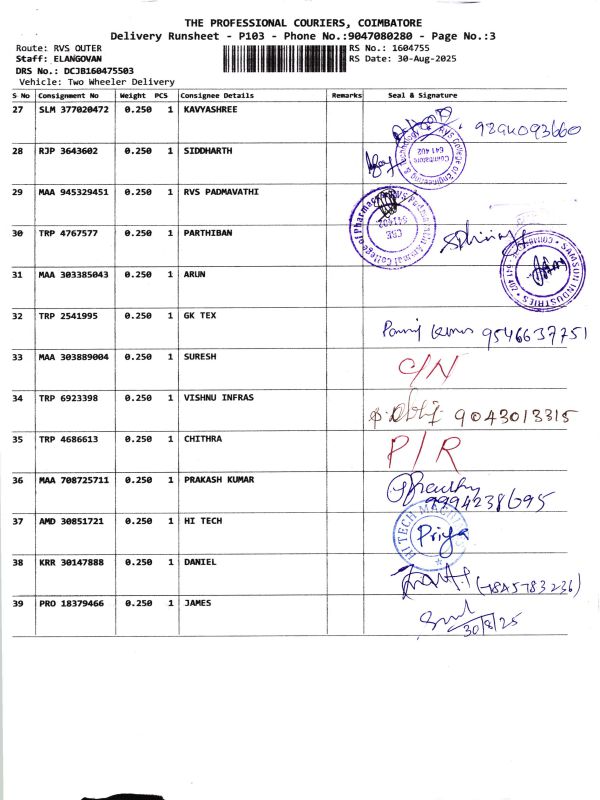 THE PROFESSIONAL COURIERS, COIMBATORE
Delivery Runsheet - P103 - Phone No.:9047080280 - Page No.:3
Route: RVS OUTER RS No.: 1604755
Staff: ELANGOVAN RS Date: 30-Aug-2025
DRS No.: DCJB160475503
Vehicle: Two Wheeler Delivery
S No Consignment No Weight PCS Consignee Details Remarks Seal & Signature
27 SLM 377020472 0.250 1 KAVYASHREE
28 RJP 3643602 0.250 1 SIDDHARTH
RVS College of Engineering & Technology Coimbatore 641 402
29 MAA 945329451 0.250 1 RVS PADMAVATHI
RVS Padmavathi Ammal College of Pharmacy CBE
30 TRP 4767577 0.250 1 PARTHIBAN
31 MAA 303385043 0.250 1 ARUN
SAMSUN INDUSTRIES
32 TRP 2541995 0.250 1 GK TEX 9546637751
33 MAA 303889004 0.250 1 SURESH C/N
34 TRP 6923398 0.250 1 VISHNU INFRAS 9043013315
35 TRP 4686613 0.250 1 CHITHRA P/R
36 MAA 708725711 0.250 1 PRAKASH KUMAR 9994238695
37 AMD 30851721 0.250 1 HI TECH HI TECH Priya
38 KRR 30147888 0.250 1 DANIEL
39 PRO 18379466 0.250 1 JAMES
30/8/25